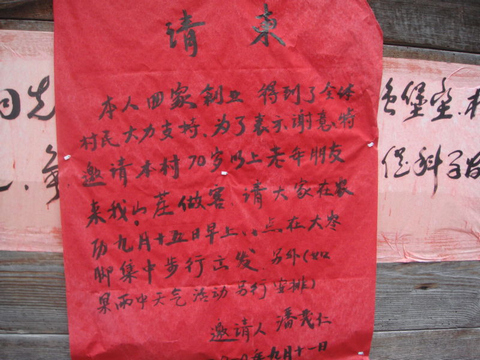 请柬
本人回家创业 得到了全体
村民大力支持,为了表示谢意,特
邀请本村70岁以上老年朋友
来我山庄做客 请大家在农
历九月十五日早上 点,在大寨
脚集中步行出发 另外(如
果雨中天气活动另行安排)
邀请人 潘茂仁
年九月十一日
同先
堡垒
科学发